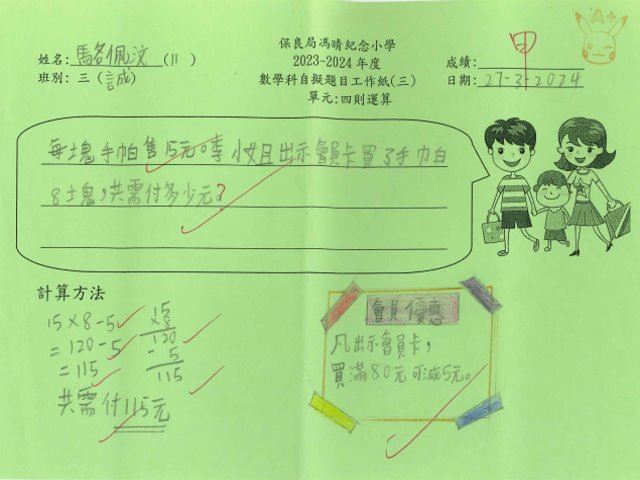 保良局馮晴紀念小學
2023-2024 年度
數學科自擬題目工作紙(三)
單元:四則運算
姓名: 馬 佩汶 (11)
班別: 三 (誠)
成績: 甲
日期: 27-3-2024
A+
每塊手帕售15元。李小姐出示會員卡買了手巾白
8塊,共需付多少元?
計算方法
15×8-5
=120-5
=115
共需付115元
15
×8
120
-5
115
會員優惠
凡出示會員卡,
買滿80元可減5元。